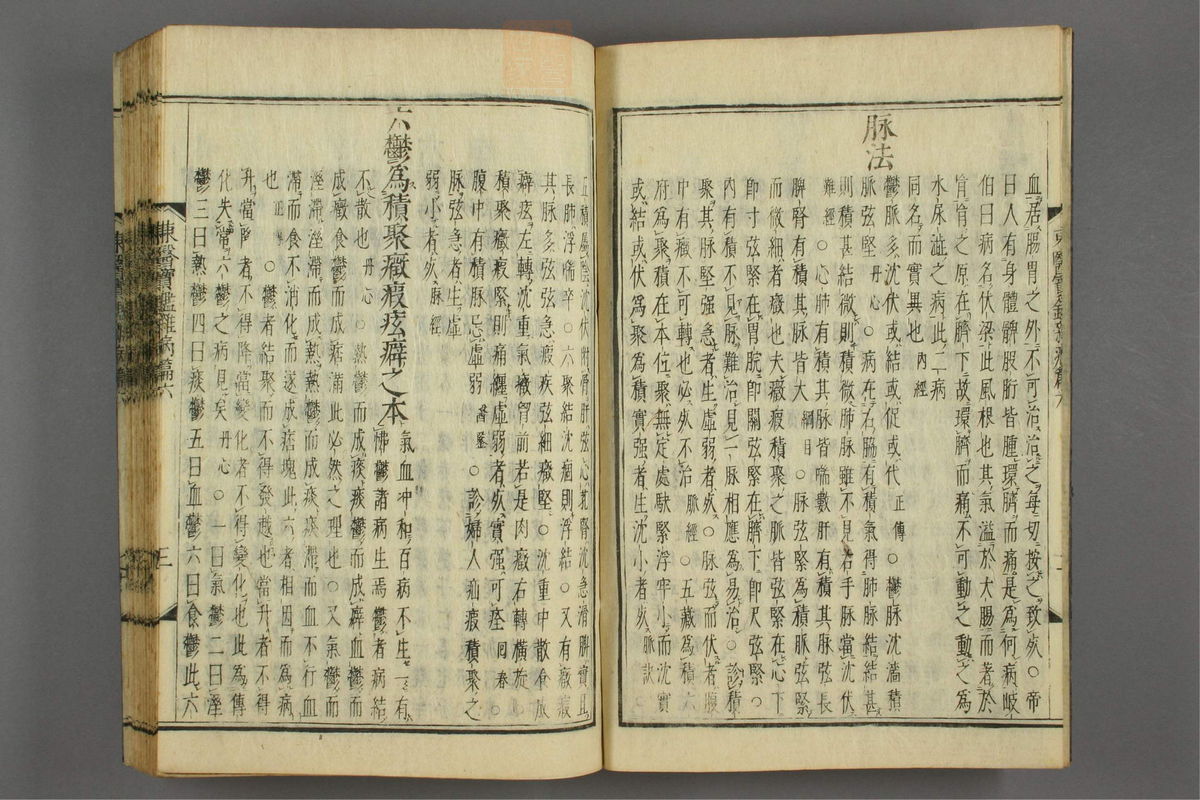 血居腸胃之外不可治治之每切按之致死○帝
曰人有身體髀股胻皆腫環臍而痛是爲何病岐
伯曰病名伏梁此風根也其氣溢於大腸而著於
肓肓之原在臍下故環臍而痛不可動之動之爲
水尿澁之病此二病
同名而實異也 內經
脉法
鬱脈多沈伏或結或促或代 正傳 ○鬱脉沈濇積
脈弦堅 丹心 ○病在右脇有積氣得肺脉結結甚
則積甚結微則積微肺脉雖不見右手脉當沈伏
難經 ○心肺有積其脉皆喘數肝有積其脉弦長
脾腎有積其脉皆大 綱目 ○脉弦緊爲積脉弦緊
而微細者癥也夫癥瘕積聚之脈皆弦緊在心下
卽寸弦緊在胃脘卽關弦緊在臍下卽尺弦緊○
內有積不見脉難治見一脉相應爲易治○診積
聚其脉堅强急者生虛弱者死○脉弦而伏者腹
中有癥不可轉也必死不治 脈經 ○五藏爲積六
府爲聚積在本位聚無定處駃緊浮牢小而沈實
或結或伏爲聚爲積實强者生沈小者死 脈訣
五積屬陰沈伏附骨肝弦心芤腎沈急滑脾實且
長肺浮喘卒○六聚結沈痼則浮結○又有癥瘕
其脉多弦弦急瘕疾弦細癥堅○沈重中散食成
癖痃左轉沈重氣癥胃前若是肉癥右轉橫旋
積聚癥瘕緊則痛纏虛弱者死實强可痊 回春 ○
腹中有積脉忌虛弱 醫鑑 ○診婦人疝瘕積聚之
脉弦急者生虛
弱小者死 脈經
六鬱爲積聚癥瘕痃癖之本 氣血冲和百病不生一有
怫鬱諸病生焉鬱者病結
不散也 丹心 ○熱鬱而成痰痰鬱而成癖血鬱而
成癥食鬱而成痞滿此必然之理也○又氣鬱而
溼滯溼滯而成熱熱鬱而成痰痰滯而血不行血
滯而食不消化而遂成痞塊此六者相因而爲病
也 正傳 ○鬱者結聚而不得發越也當升者不得
升當降者不得降當變化者不得變化也此爲傳
化失常六鬱之病見矣 丹心 ○一曰氣鬱二曰溼
鬱三曰熱鬱四曰痰鬱五曰血鬱六曰食鬱此六
東醫寶鑑雜病篇六
三